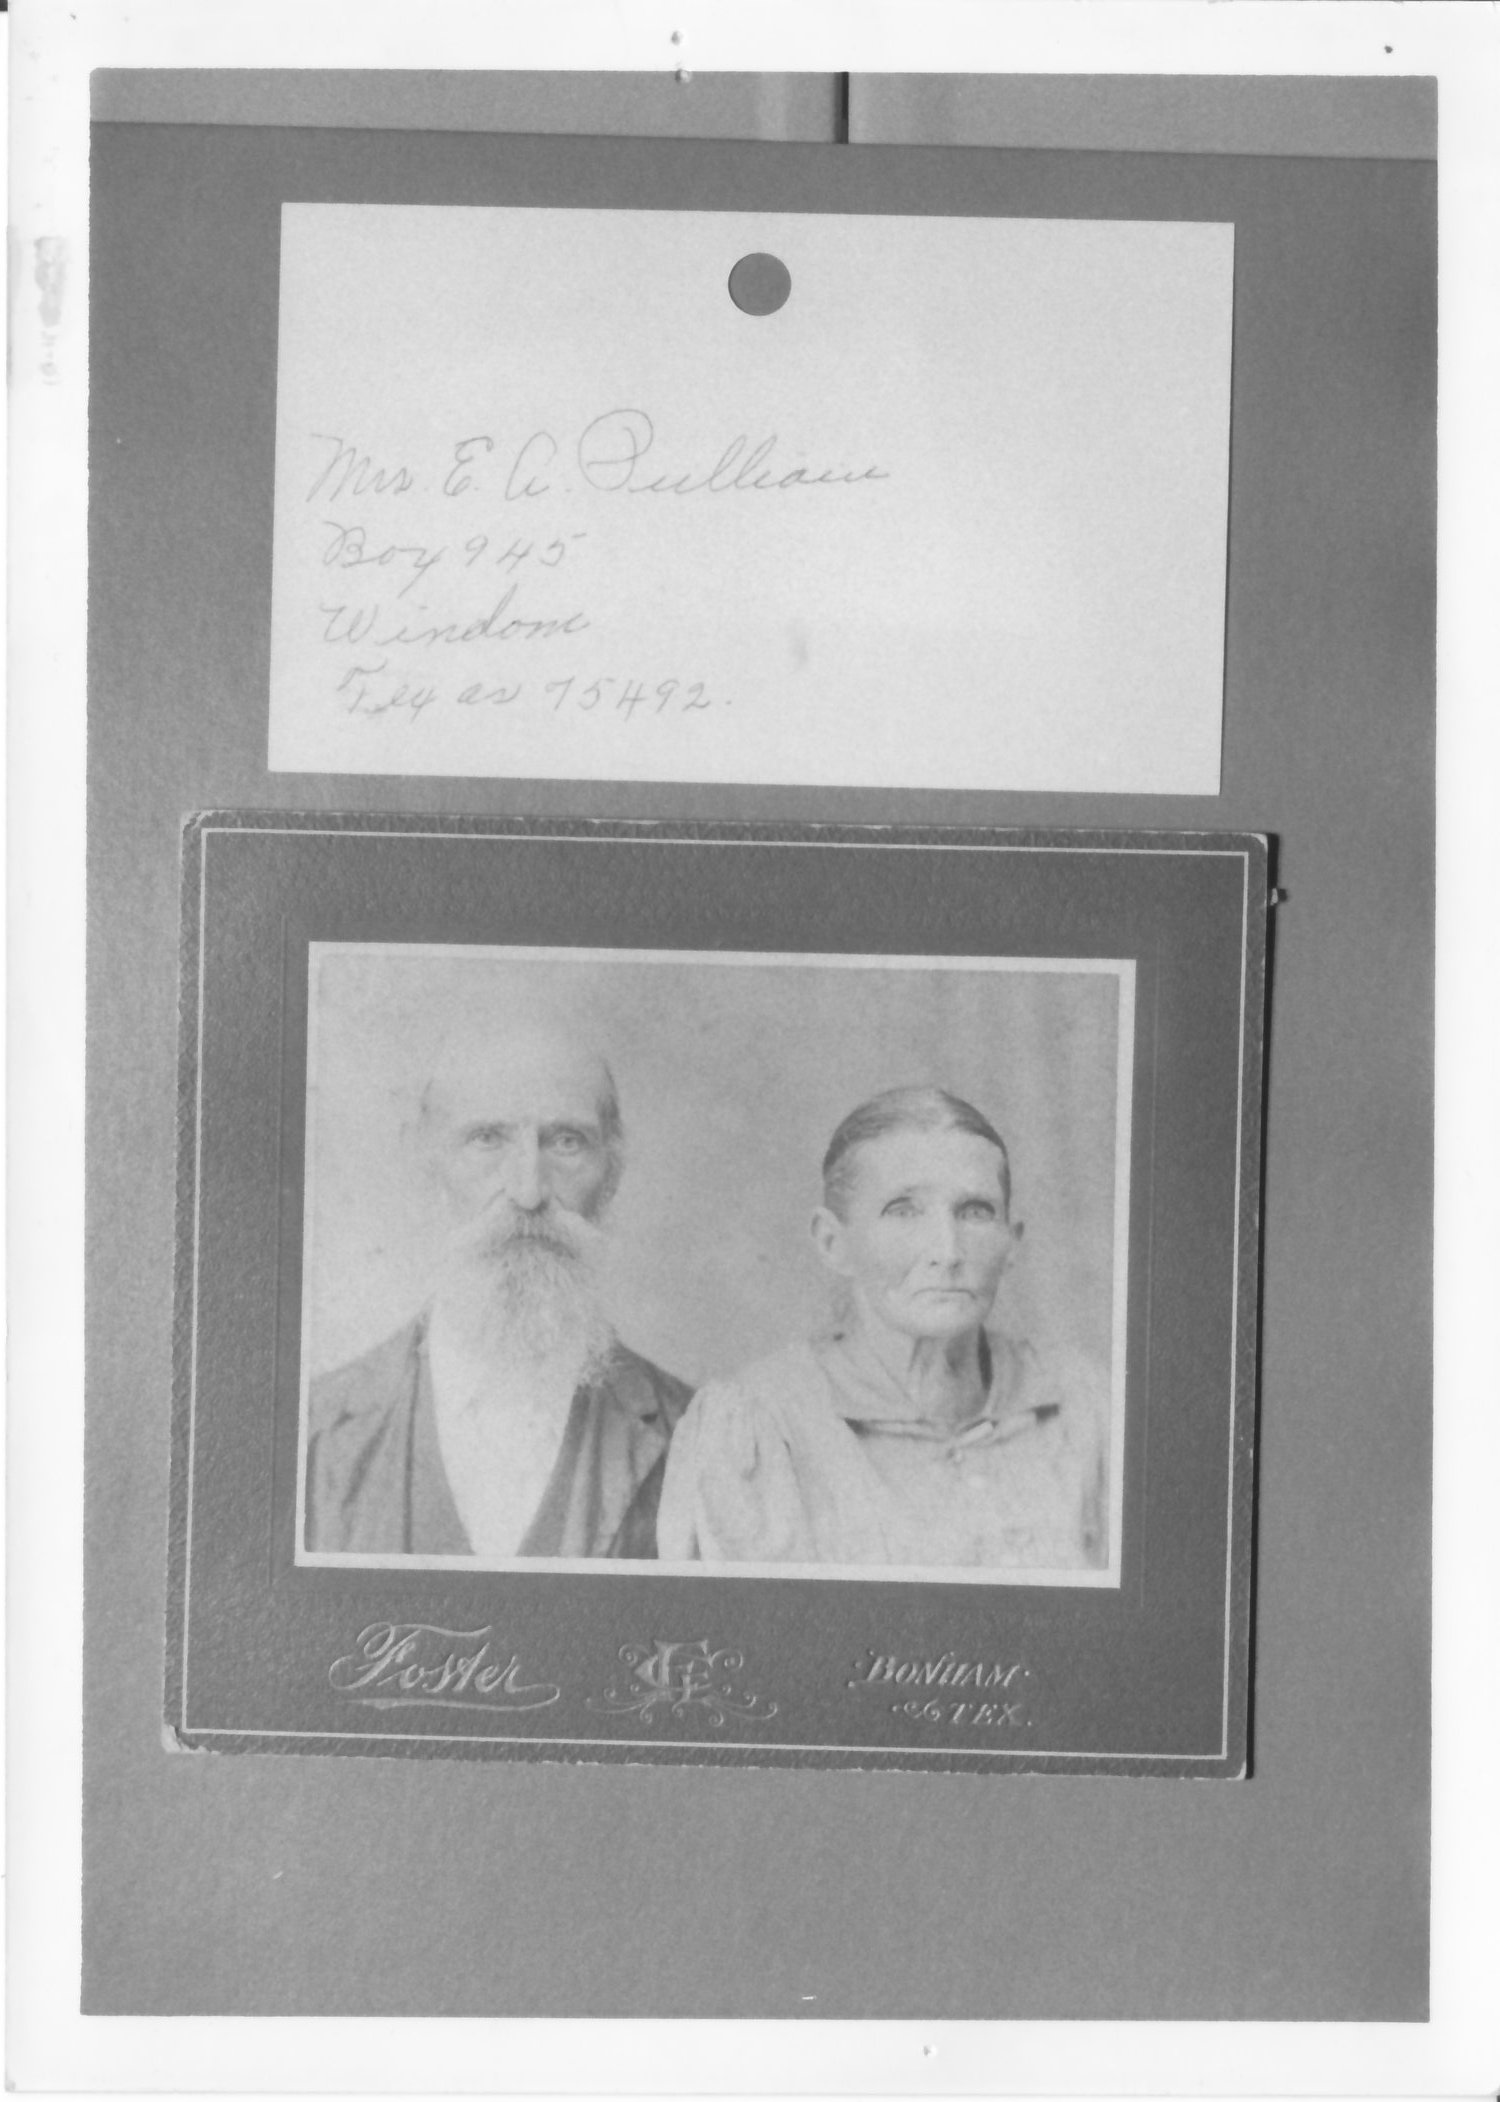 Mrs. E. A. Pulliam
Box 945
Windom
Texas 75492.
Foster
BONHAM
TEX.